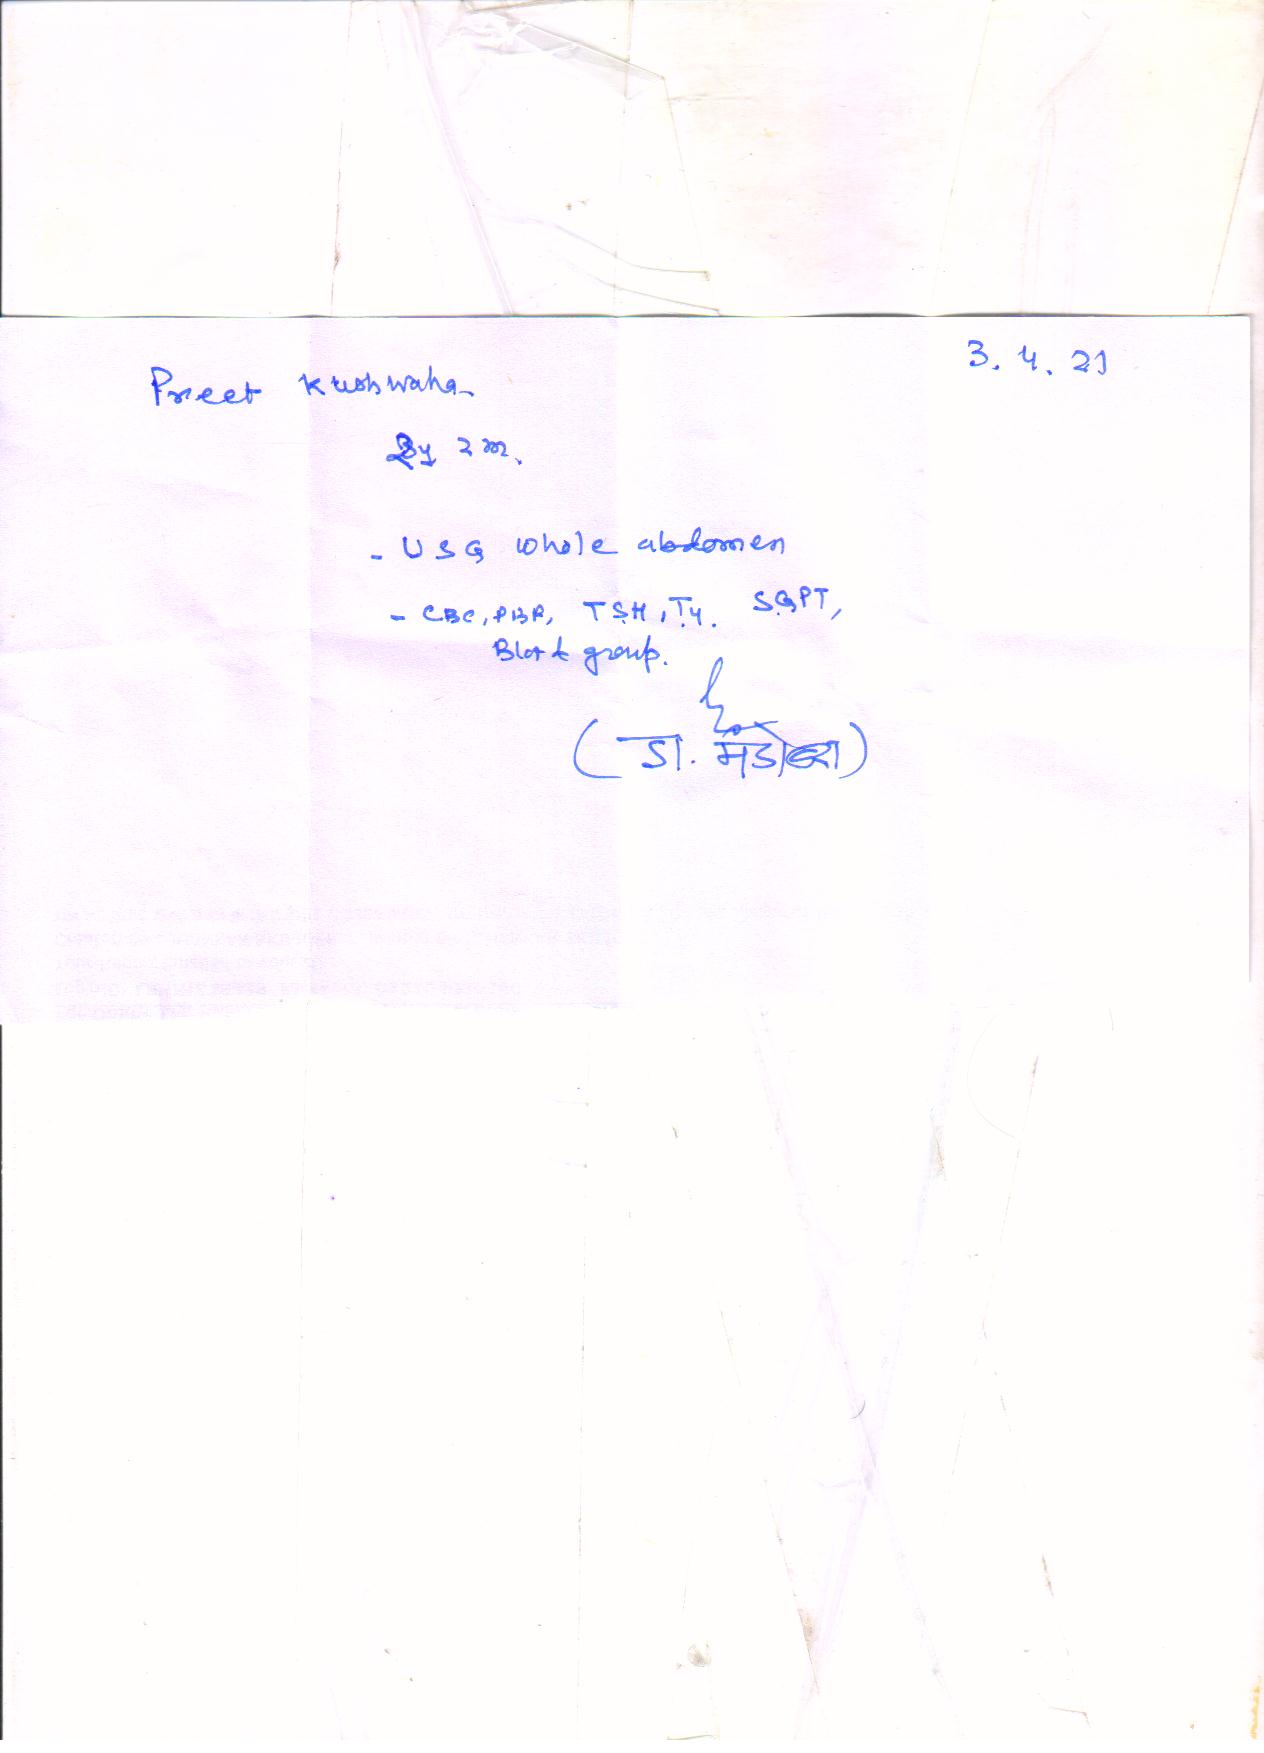 3.4.21
Preet Kushwaha
2y 2m.
- USG whole abdomen
- CBC, PBF, TSH, T4. SGPT,
Blood group.
(डा.